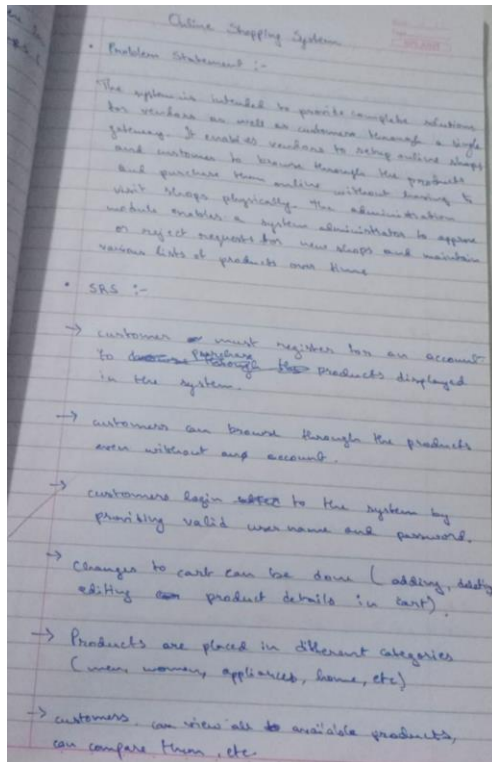 Online Shopping System
• Problem Statement :-
The system is intended to provide complete solutions
for vendors as well as customers through a single
gateway. It enables vendors to setup online shops
and customer to browse through the products
and purchase them online without having to
visit shops physically. The administration
module enables a system administrator to approve
or reject requests for new shops and maintain
various lists of products over time
• SRS :-
→ customer must register for an account
to purchase products displayed
in the system.
→ customers can browse through the products
even without any account.
→ customers login to the system by
providing valid user name and password.
→ Changes to cart can be done (adding, deleting
editing product details in cart).
→ Products are placed in different categories
(men, women, appliances, home, etc)
→ customers can view all available products,
can compare them, etc.